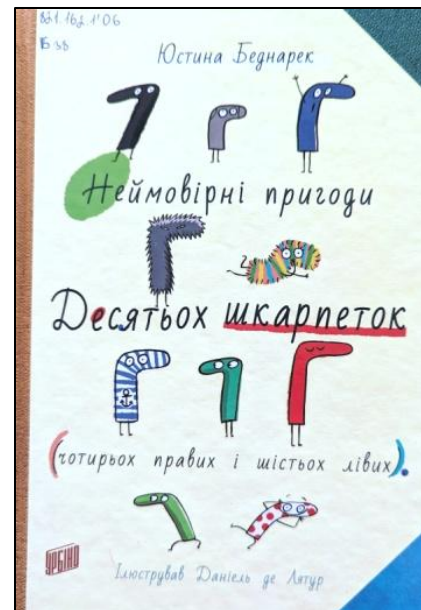 821.162.1'06
Б 38
Юстина Беднарек
Неймовірні пригоди
Десятьох шкарпеток
(чотирьох правих і шістьох лівих).
УРБІНО
Ілюстрував Даніель де Лятур